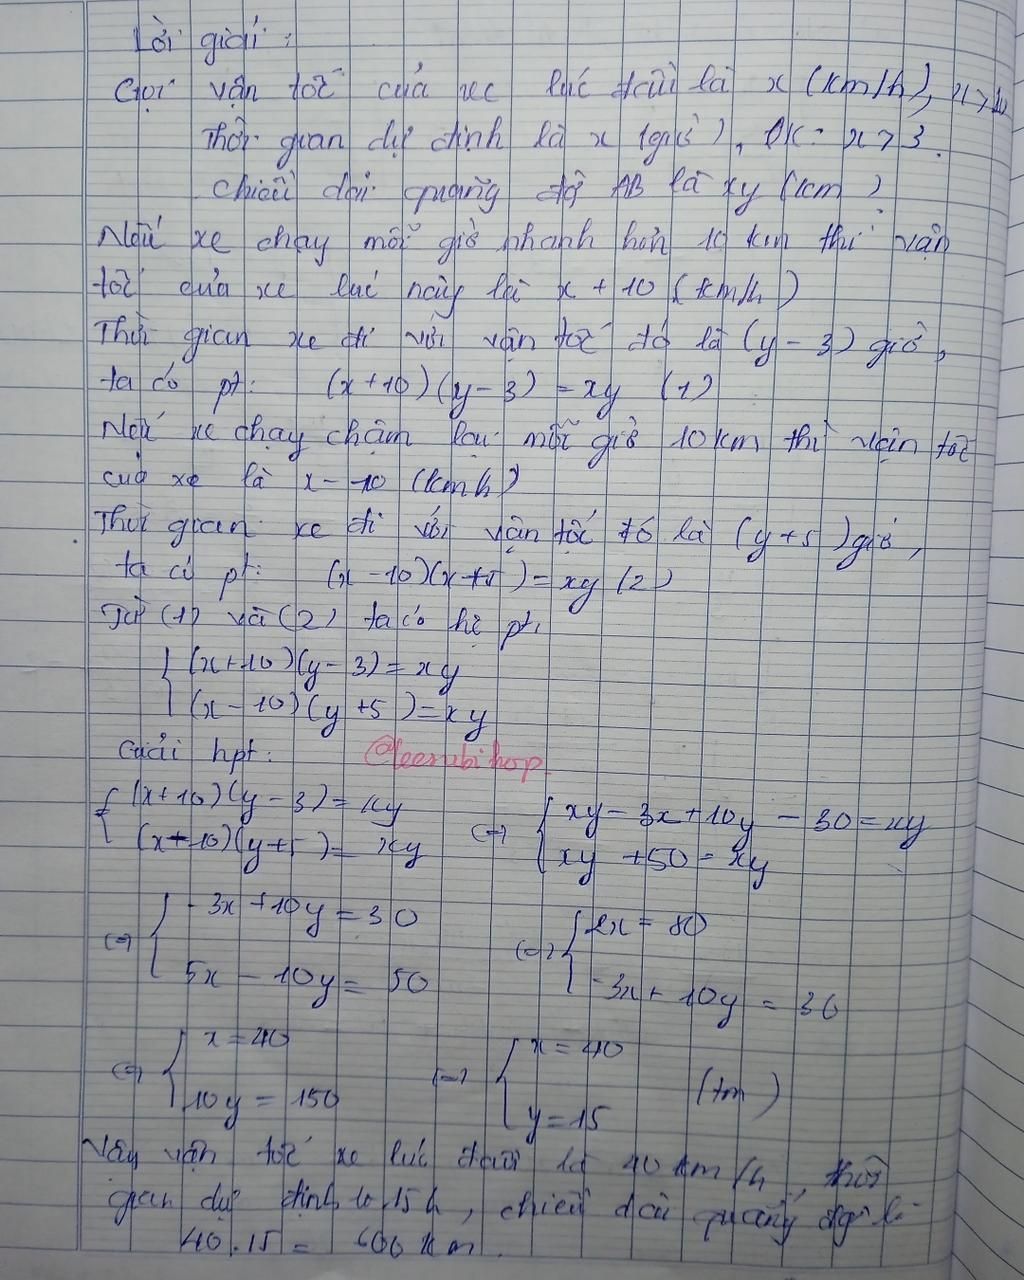 Lời giải:
Gọi vận tốc của xe lúc đầu là x (km/h), x > 10
Thời gian dự định là x (giờ), ĐK: x > 3.
Chiều dài quãng độ AB là xy (km)
Nếu xe chạy mỗi giờ nhanh hơn 10 km thì vận
tốc của xe lúc này là x + 10 (km/h)
Thời gian xe đi với vận tốc đó là (y - 3) giờ,
ta có pt: (x+10)(y-3) = xy (1)
Nếu xe chạy chậm lại mỗi giờ 10km thì vận tốc
của xe là x - 10 (km h)
Thời gian xe đi với vận tốc đó là (y+5) giờ,
ta có pt: (x-10)(x+5) = xy (2)
Từ (1) và (2) ta có hệ pt:
(x+10)(y-3) = xy
(x-10)(y+5) = xy
Giải hpt: @leerubihop.
{ (x+10)(y-3) = xy (=) { xy - 3x + 10y - 30 = xy
(x-10)(y+5) = xy xy + 50 = xy
(=) { -3x + 10y = 30 (=) { 2x = 80
5x - 10y = 50 -3x + 10y = 30
(=) { x = 40 (=) { x = 40
10y = 150 y = 15 (tm)
Vậy vận tốc xe lúc đầu là 40 km/h, thời
gian dự định là 15 h, chiều dài quãng
40.15 = 600 km.